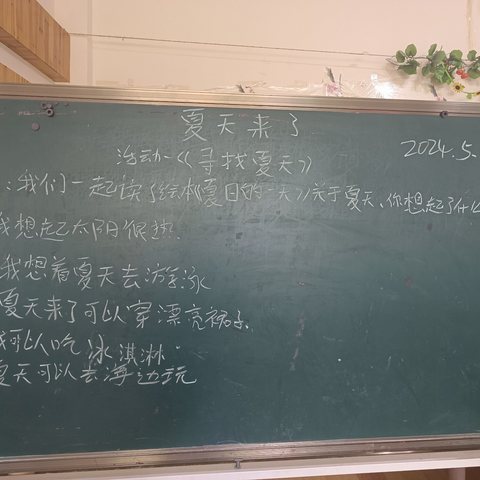 夏天来了
2024.5.
活动一《寻找夏天》
:我们一起读了绘本《夏日的一天》关于夏天、你想起了什么
我想起太阳很热.
我想着夏天去游泳
夏天来了可以穿漂亮裙子.
我可以吃冰淇淋.
夏天可以去海边玩